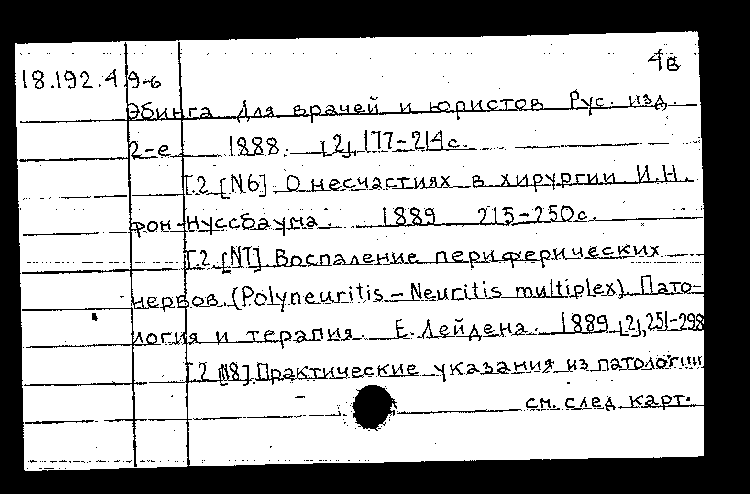 4в
18.192.4.9-6
Эбинга Для врачей и юристов Рус. изд.
2-е 1888. [2], 177-214с.
Т.2 [N6]. О несчастиях в хирургии И.Н.
фон-Нуссбаума. 1889 215-250с.
Т.2 [N7] Воспаление периферических
нервов (Polyneuritis - Neuritis multiplex) Пато-
логия и терапия. Е. Лейдена. 1889 [2], 251-298
Т.2 [N8] Практические указания из патологии
см. след. карт.